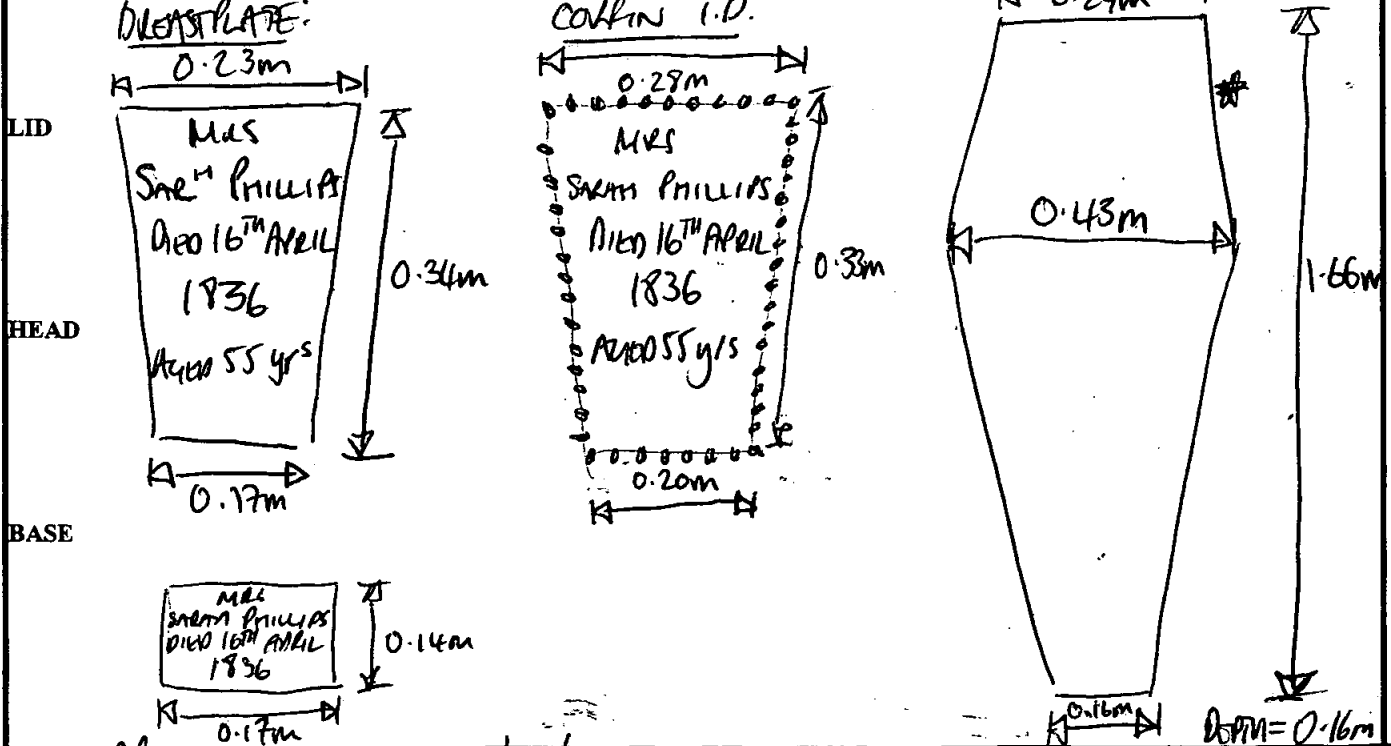 BREASTPLATE:
0.23m
LID
MRS
SARH PHILLIPS
DIED 16TH APRIL
1836
AGED 55 yrs
0.34m
0.17m
HEAD
BASE
MRS
SARAH PHILLIPS
DIED 16TH APRIL
1836
0.14m
0.17m
COFFIN I.D.
0.28m
MRS
SARAH PHILLIPS
DIED 16TH APRIL
1836
AGED 55 yrs
0.33m
0.20m
0.43m
1.66m
0.16m
DEPTH = 0.16m